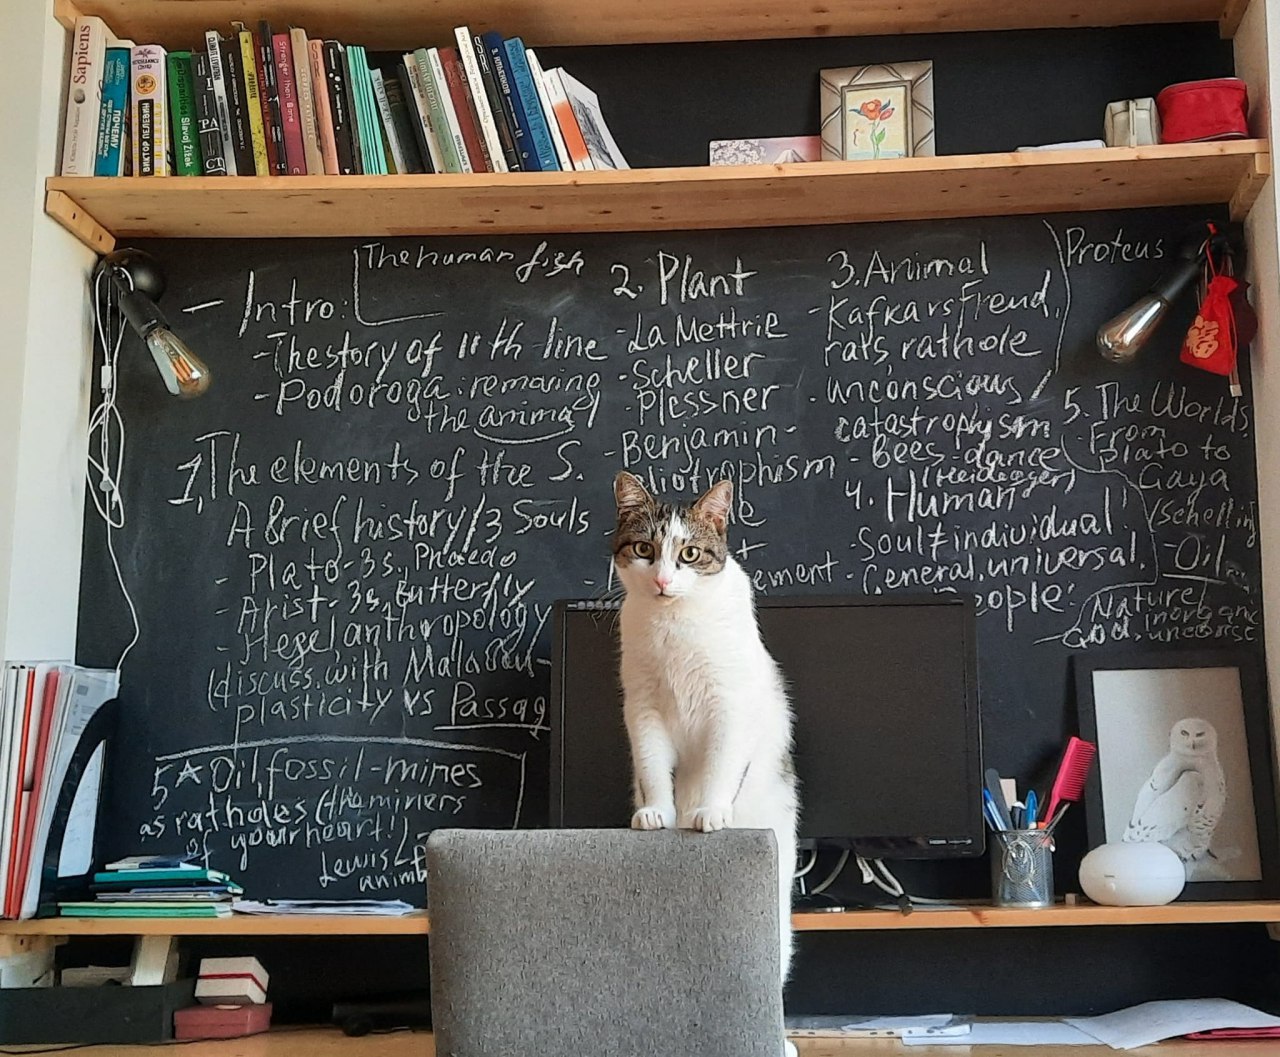 Sapiens
ПОЧЕМУ
ВИКТОР ПЕЛЕВИН
Disparities Slavoj Žižek
РА
СТ
Stranger than Bone
Э. ИЛЬЕНКОВ
- Intro:
The human fish
- The story of 11th line
- Podoroga: removing
the animal
1, The elements of the S.
A Brief history/3 Souls
- Plato-3s, Phaedo
- Arist-3s, Butterfly
- Hegel anthropology
(discuss. with
plasticity vs Passag
5* Oil, fossil-mines
as ratholes (the miners
of your heart!
Lewis
anima
2. Plant
- La Mettrie
- Scheller
- Plessner
- Benjamin-
eliotrophism
ement
3. Animal
- Kafka vs Freud,
rats rathole
unconscious/
catastrophysm
- Bees-dance
(Heidegger)
4. Human
- Soul≠individual!
General, universal.
eople:
Proteus
5. The Worlds
From
Plato to
Gaya
(Schelling
- Oil
Nature/
inorganic
God,
福
HDMI